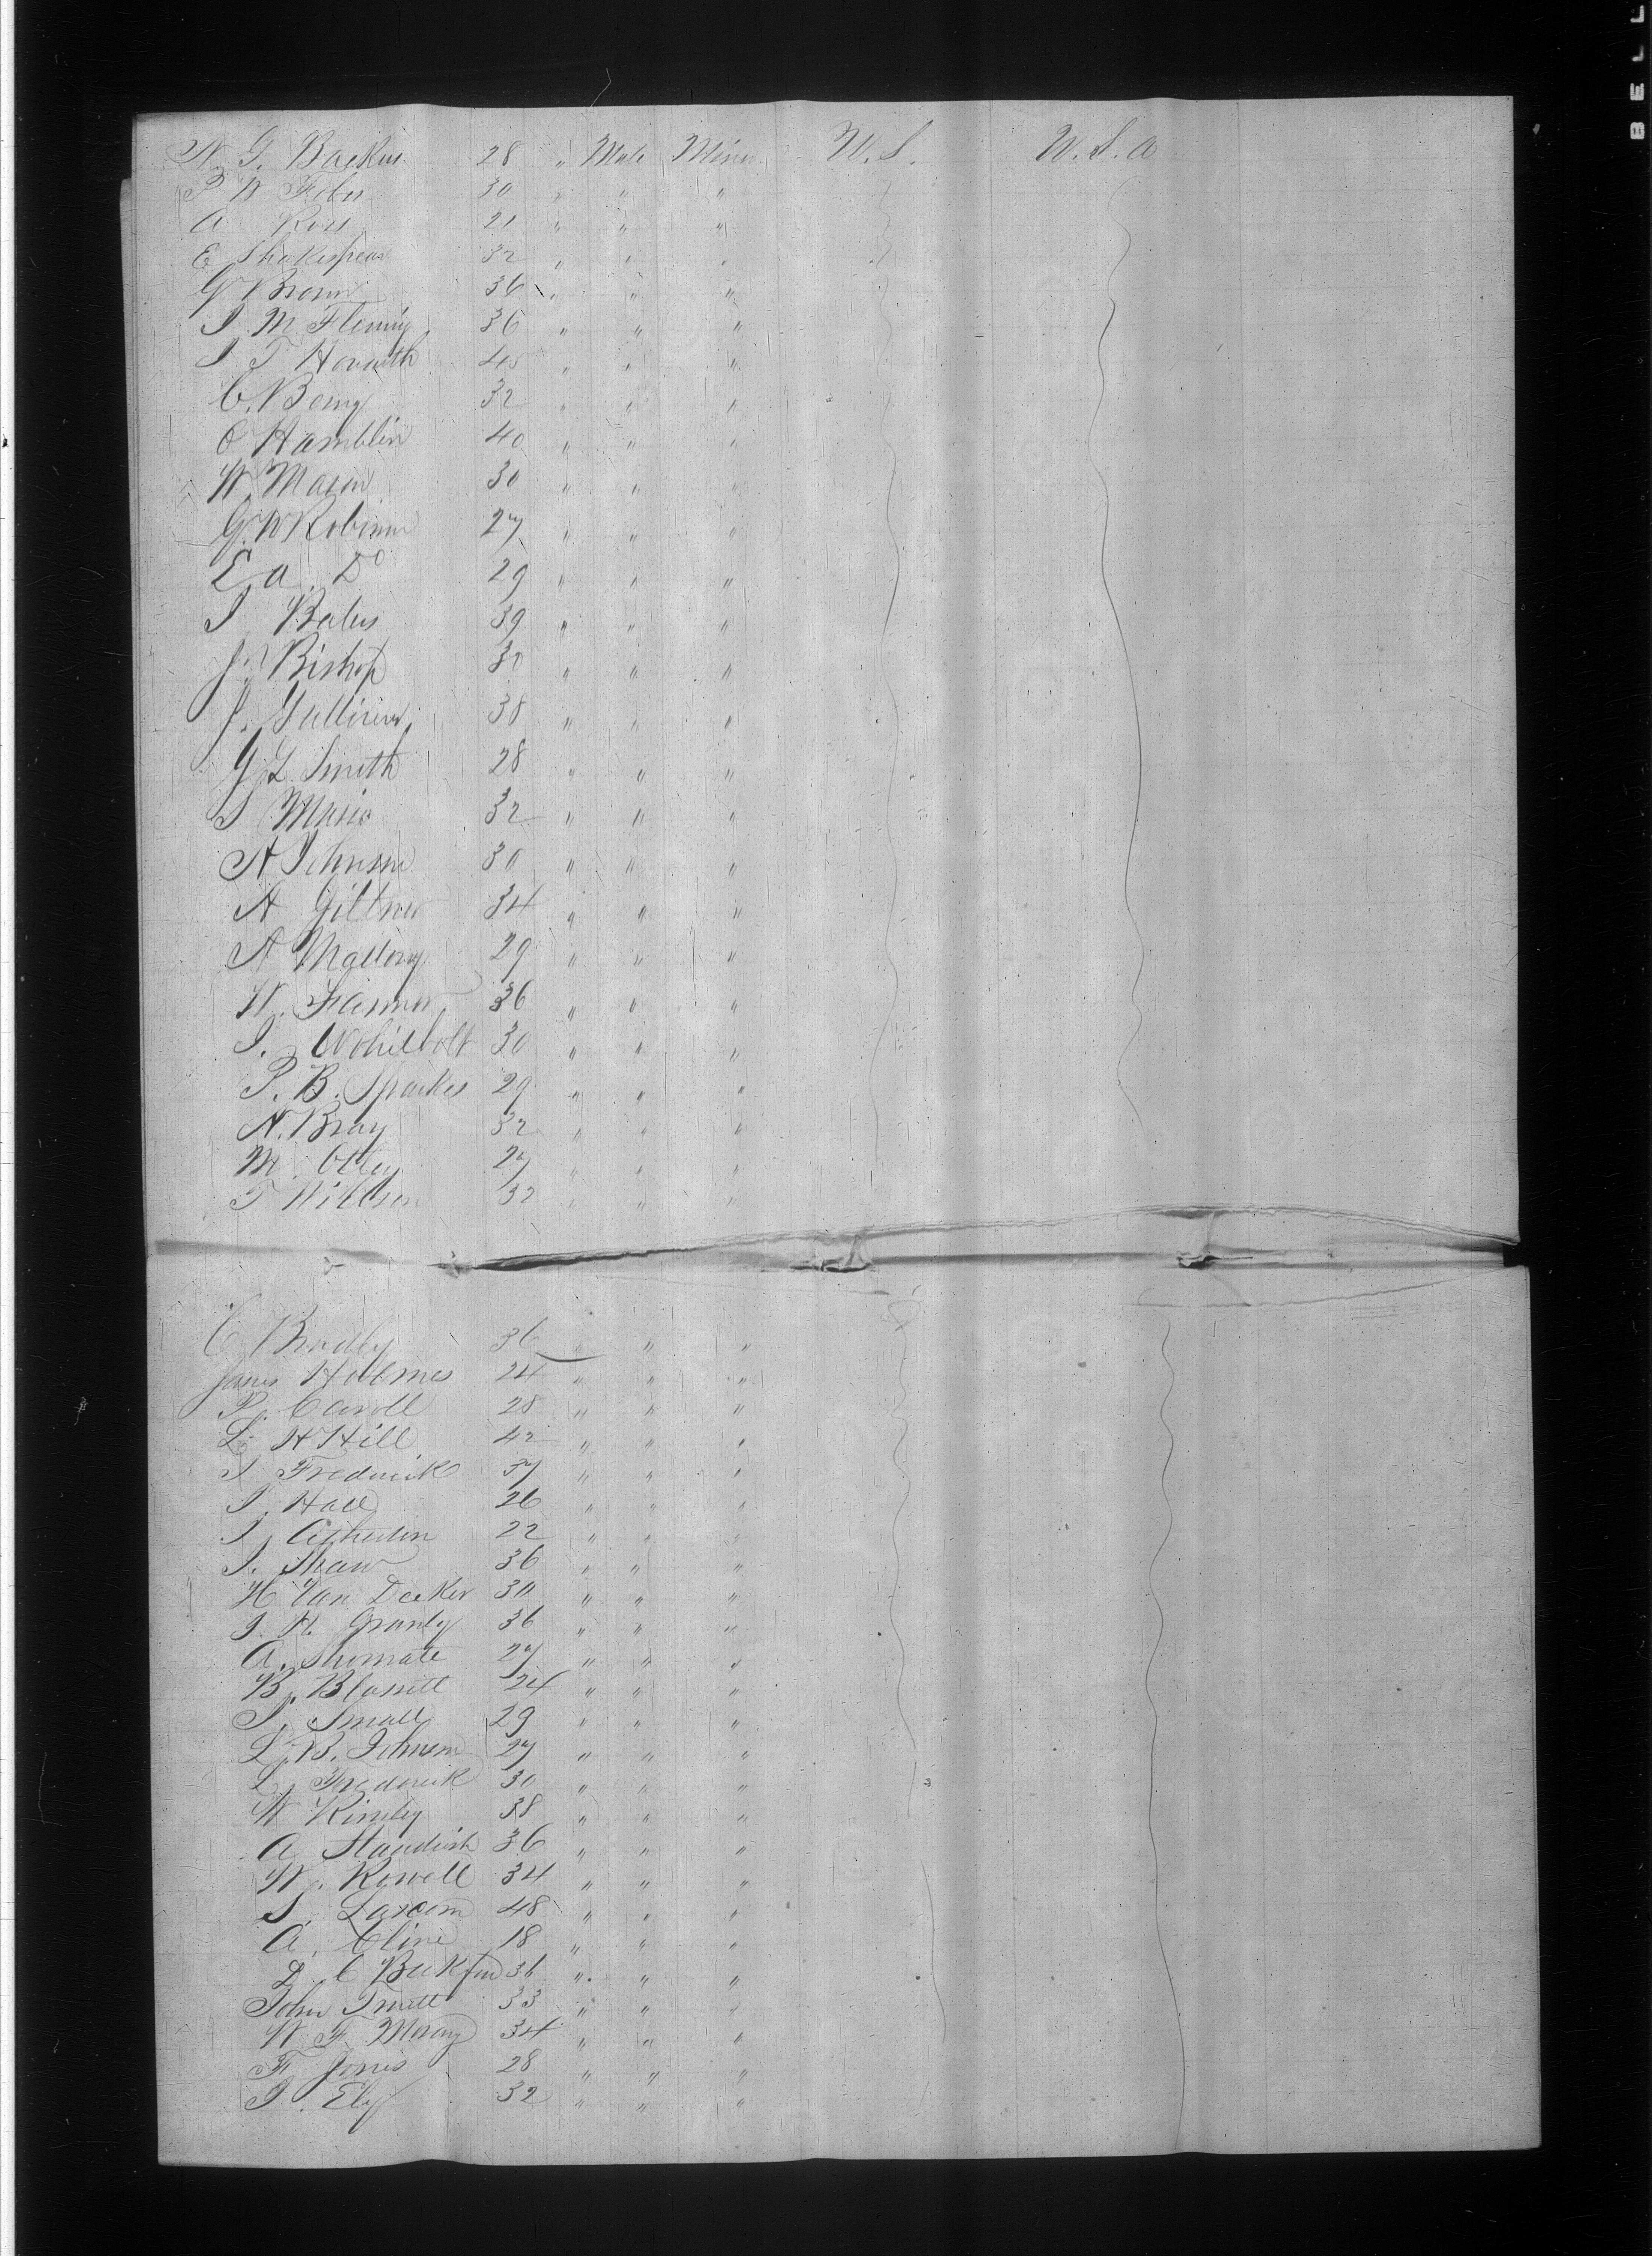 N. G. Backus 28 " Male Miner U.S. U.S.A
P W Fobes 30 " " "
A Ross 21 " " "
E Shakespear 32 " " "
G Brown 36 " " "
I. M Fleming 36 " " "
I T Howarth 45 " " "
C. Bomy 32 " " "
O Hamblin 40 " " "
W. Mason 30 " " "
G. W Robinson 27 " " "
E. a. Do 29 " " "
I Bates 39 " " "
J. Bishop 30 " " "
J. Sullivan 38 " " "
G. L Smith 28 " " "
S 32 " " "
A Johnson 30 " " "
A Giltner 34 " " "
A Mallory 29 " " "
W. 36 " " "
I. Whilbolt 30 " " "
P. B. Sparkes 29 " " "
N. Bray 32 " " "
M. Olley 27 " " "
T Willson 32 " " "
C Bradley 36 " " "
James Holmes 24 " " "
P. Caroll 28 " " "
L. H Hill 42 " " "
I Frederick 37 " " "
I. Hall 26 " " "
I. 22 " " "
I. Shaw 36 " " "
H Van Decker 30 " " "
I. H. Granby 36 " " "
A. Shumate 27 " " "
B. Blassett 24 " " "
I. Small 29 " " "
L. B. Johnson 27 " " "
L. Frederick 30 " " "
W Kinsley 38 " " "
A Standish 36 " " "
W. Rowell 34 " " "
S. Larcom 48 " " "
A. Cline 18 " " "
L. C Beckford 36 " " "
John Truitt 33 " " "
W F. Moray 34 " " "
F Jones 28 " " "
I. Ely 32 " " "
BELL